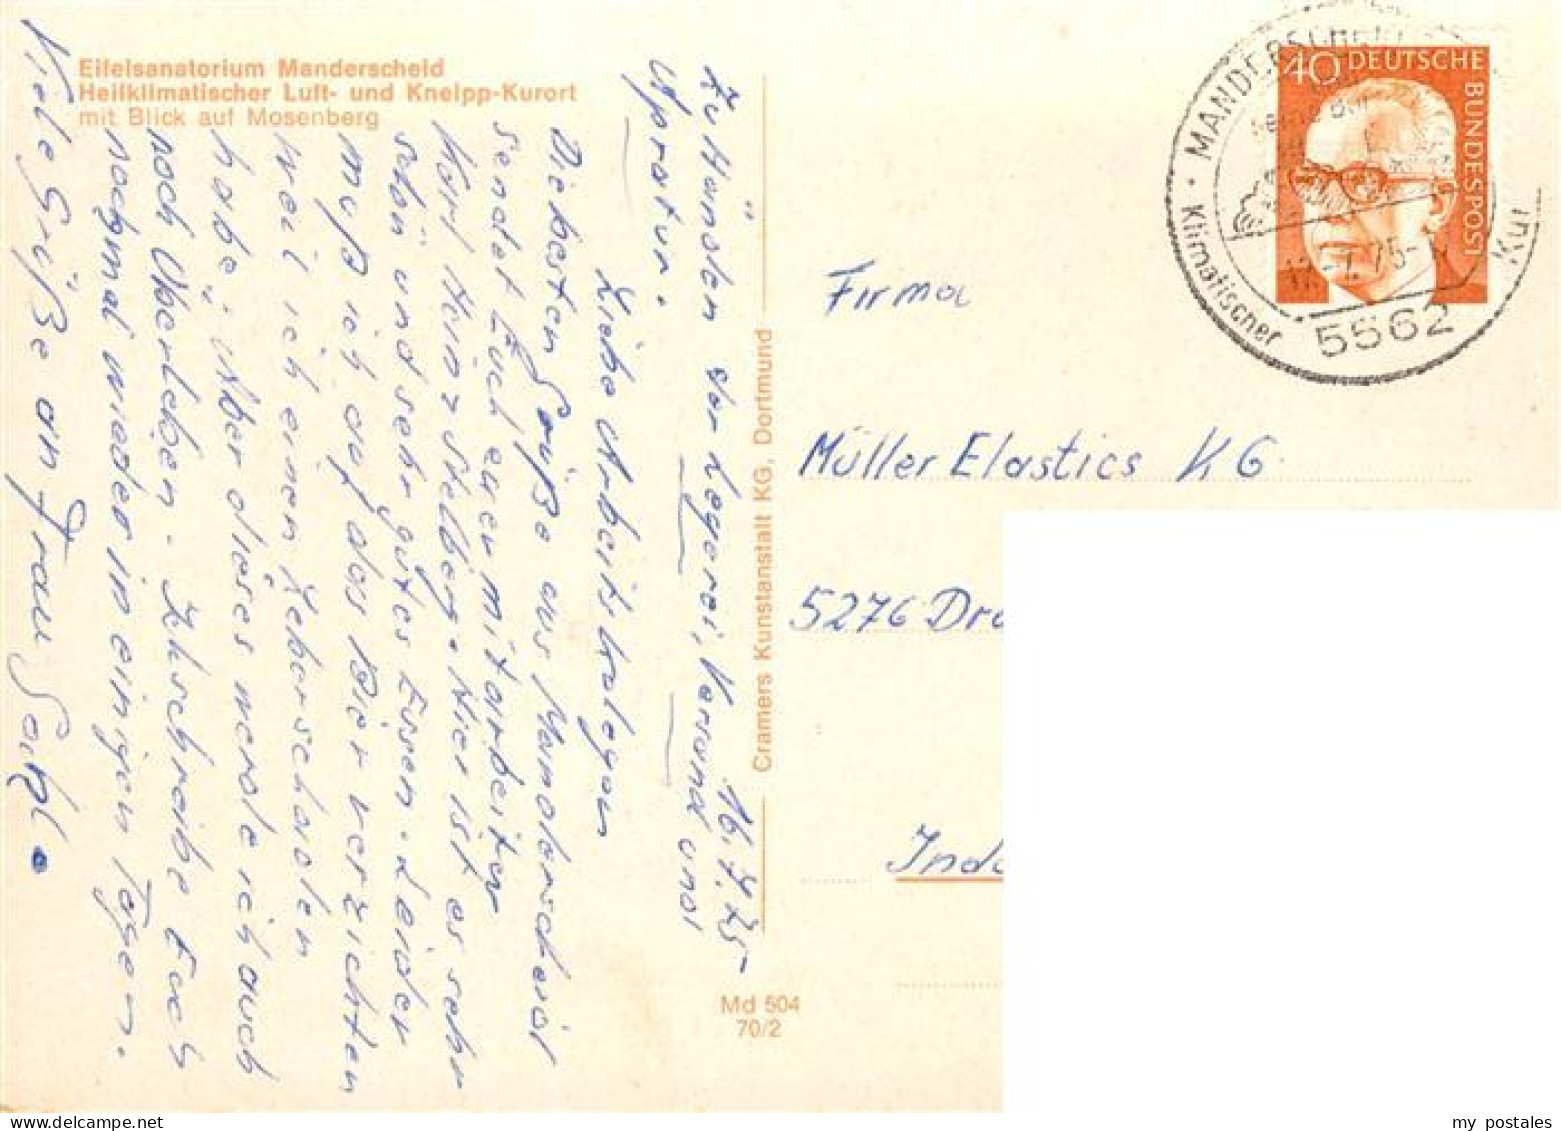 Eifelsanatorium Manderscheid
Heilklimatischer Luft- und Kneipp-Kurort
mit Blick auf Mosenberg
16.7.75-
Zu Händen der Legerei, Versand und
Apratur.
Liebe Arbeitskolegen
Die besten Grüße aus Manderscheid
sendet Euch euer mitarbeiter
Karl Heinz Selberg. Hier ist es sehr
schön und sehr gutes Essen. Leider
muß ich auf das Bier verzichten
weil ich einen Leberschaden
habe, Aber dieses werde ich auch
noch Überleben. Ich schreibe Euch
nochmal wieder in einigen Tagen.
Viele Grüße an Frau
Cramers Kunstanstalt KG, Dortmund
Md 504
70/2
40 DEUTSCHE
BUNDESPOST
MANDERSCHEI
Klimatischer
Kur
17.-7. 75-
5562
Firma
Müller Elastics KG.
5276 Dra
Inde
my postales